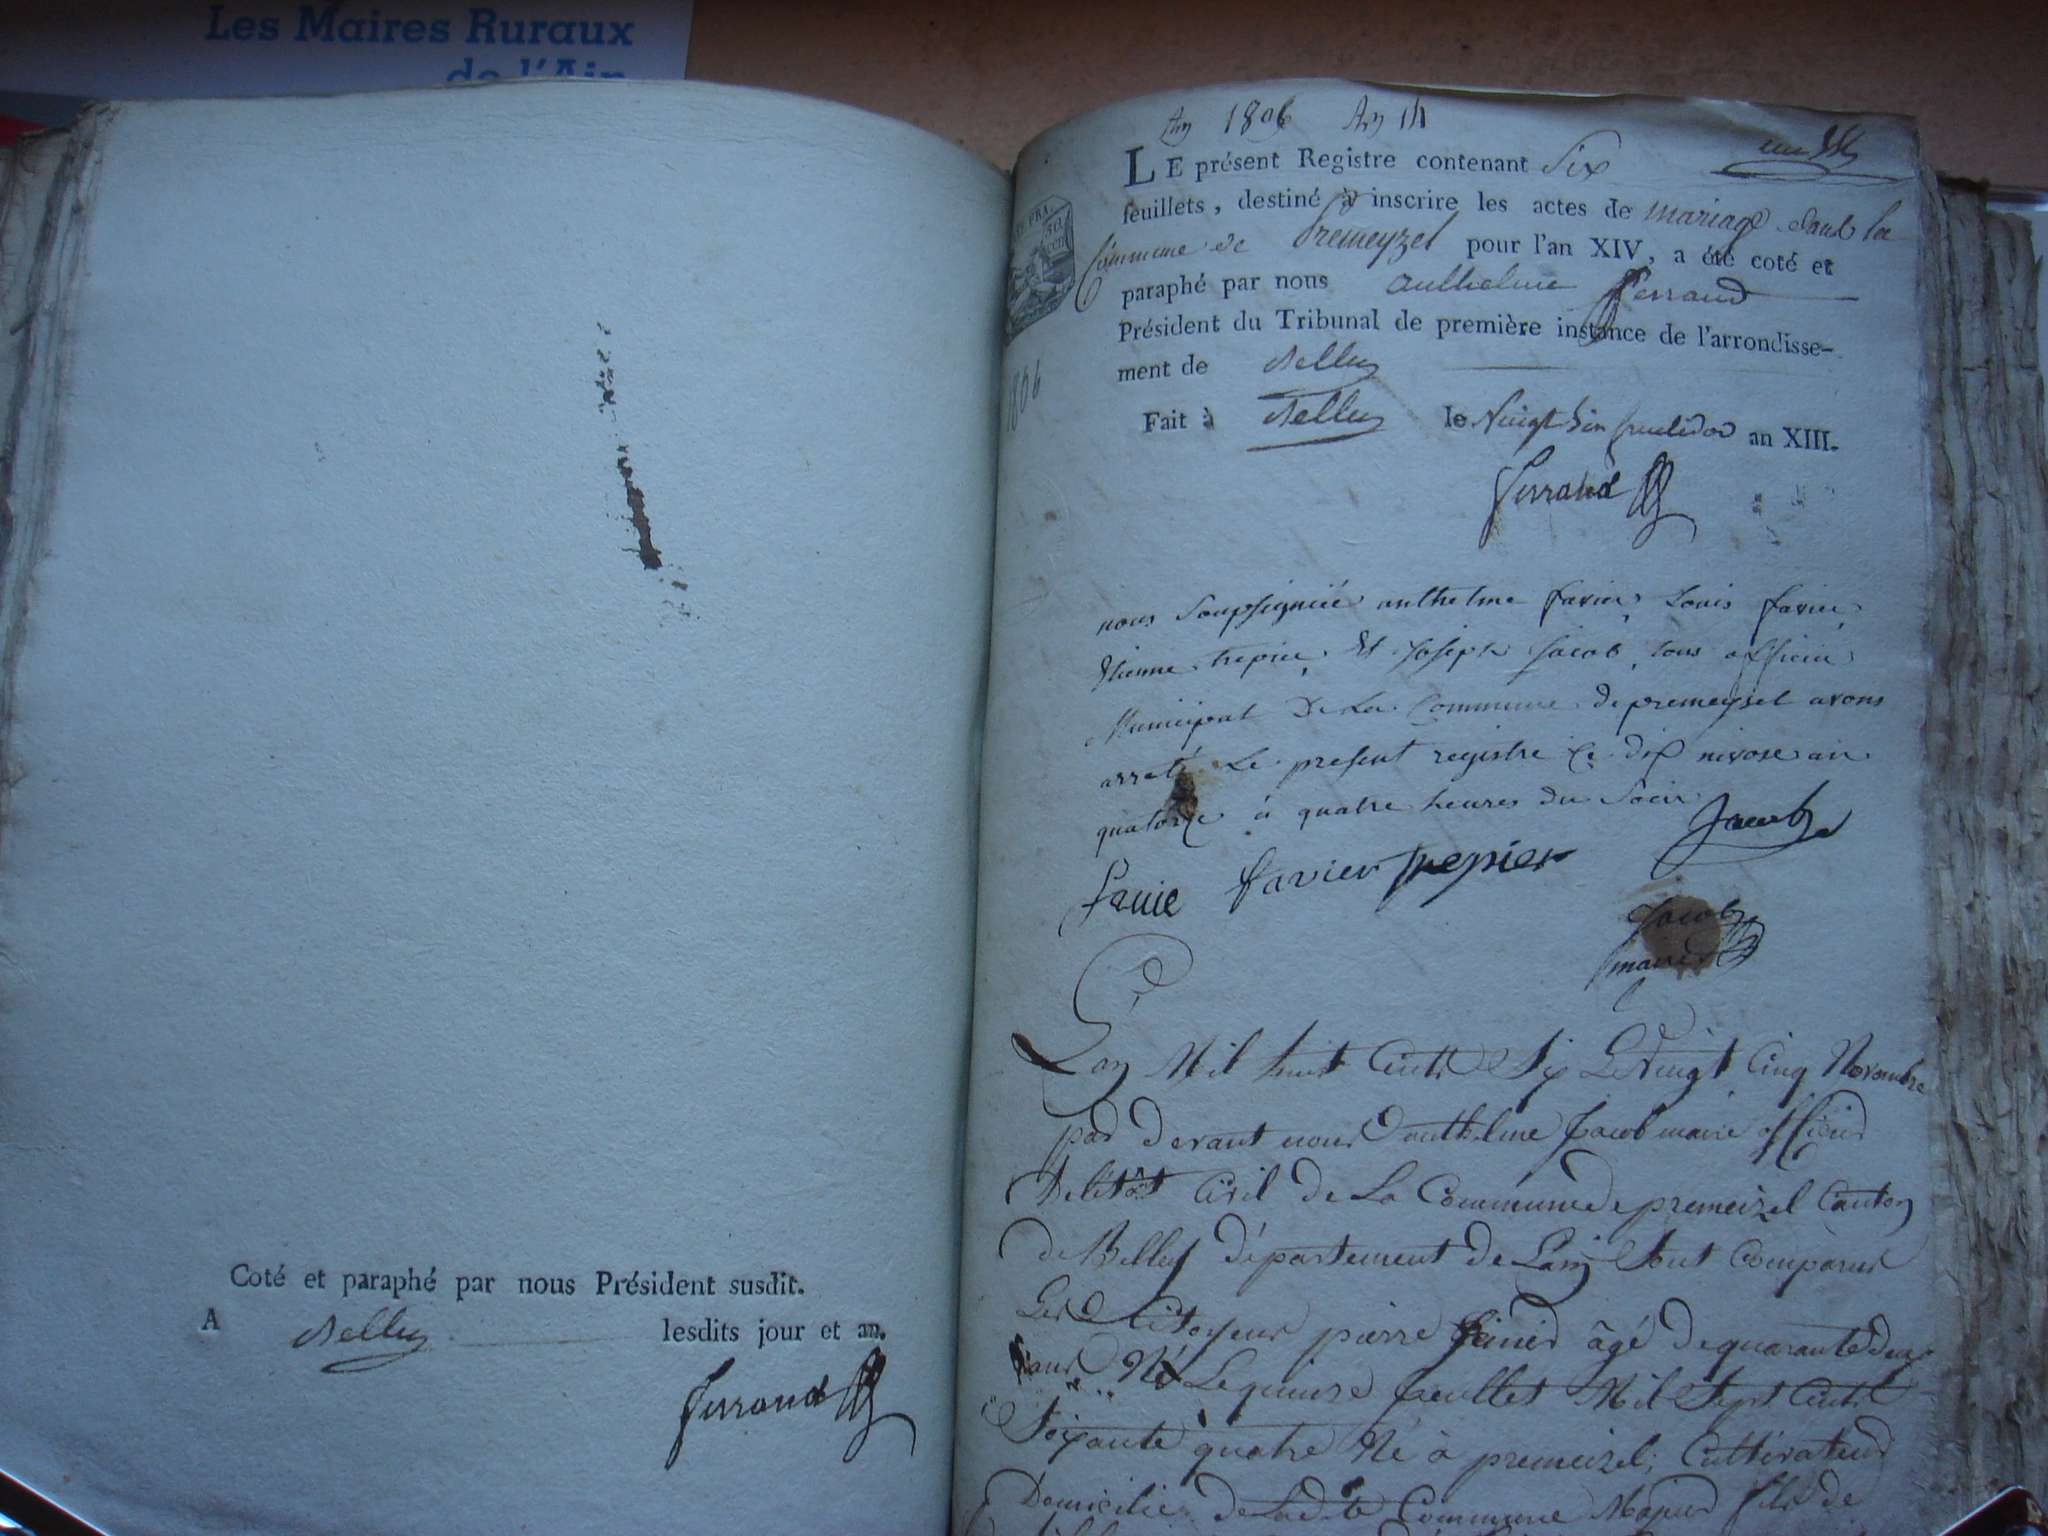 Les Maires Ruraux
de l'Ain
Coté et paraphé par nous Président susdit.
A Belley lesdits jour et an.
Ferrand
An 1806 An 14
LE présent Registre contenant Six
feuillets, destiné à inscrire les actes de mariage dans la
Commune de Premeyzel pour l'an XIV, a été coté et
paraphé par nous Anthelme Ferrand
Président du Tribunal de première instance de l'arrondisse-
ment de Belley
Fait à Belley le Vingt fructidor an XIII.
Ferrand
1806
nous Soussigniéé anthelme favier, Louis favier,
Etienne trepier, Et Joseph Jacob, tous officier
Municipal De La Commune de premeysel avons
arreté Le present registre Ce dix nivose an
quatorze à quatre heures du Soeir
Jacob
favie favier trepier
Jacob
maire
Lan Mil huit Cents Six Le Vingt Cinq Novembre
par devant nous anthelme Jacob maire officier
De letat Civil De La Commune de premeizel Canton
de Belley département de Lain Sont Comparus
Les Citoyens pierre âgé de quarante deux
ans Né Le quinze Juillet Mil Sept Cents
Soixante quatre Né à premeizel, Cultivateur
Domicilié De La dite Commune Majeur fils de